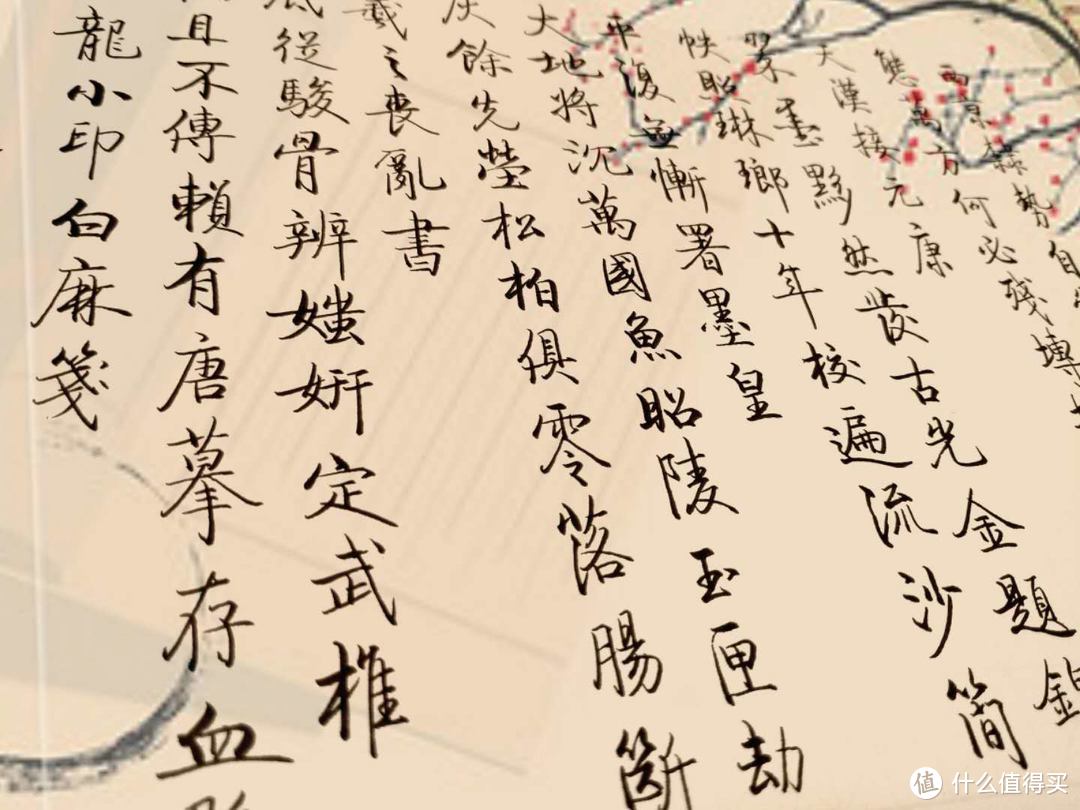 西京隸勢自
態萬方何必殘塼
天漢接元康
翠墨黟然發古光金題錦
帙照琳瑯十年校遍流沙簡
平復無慚署墨皇
大地將沉萬國魚昭陵玉匣劫
灰餘先塋松柏俱零落腸斷
羲之喪亂書
底從駿骨辨媸妍定武椎
且不傳賴有唐摹存血
龍小印白麻箋
值 什么值得买